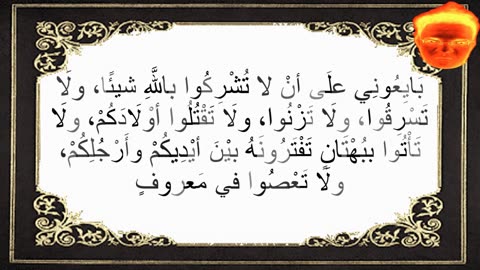 بايِعُونِي علَى أنْ لا تُشْرِكُوا باللَّهِ شيئًا، ولَا
تَسْرِقُوا، ولَا تَزْنُوا، ولَا تَقْتُلُوا أوْلَادَكُمْ، ولَا
تَأْتُوا ببُهْتَانٍ تَفْتَرُونَهُ بيْنَ أيْدِيكُمْ وأَرْجُلِكُمْ،
ولَا تَعْصُوا في مَعروفٍ